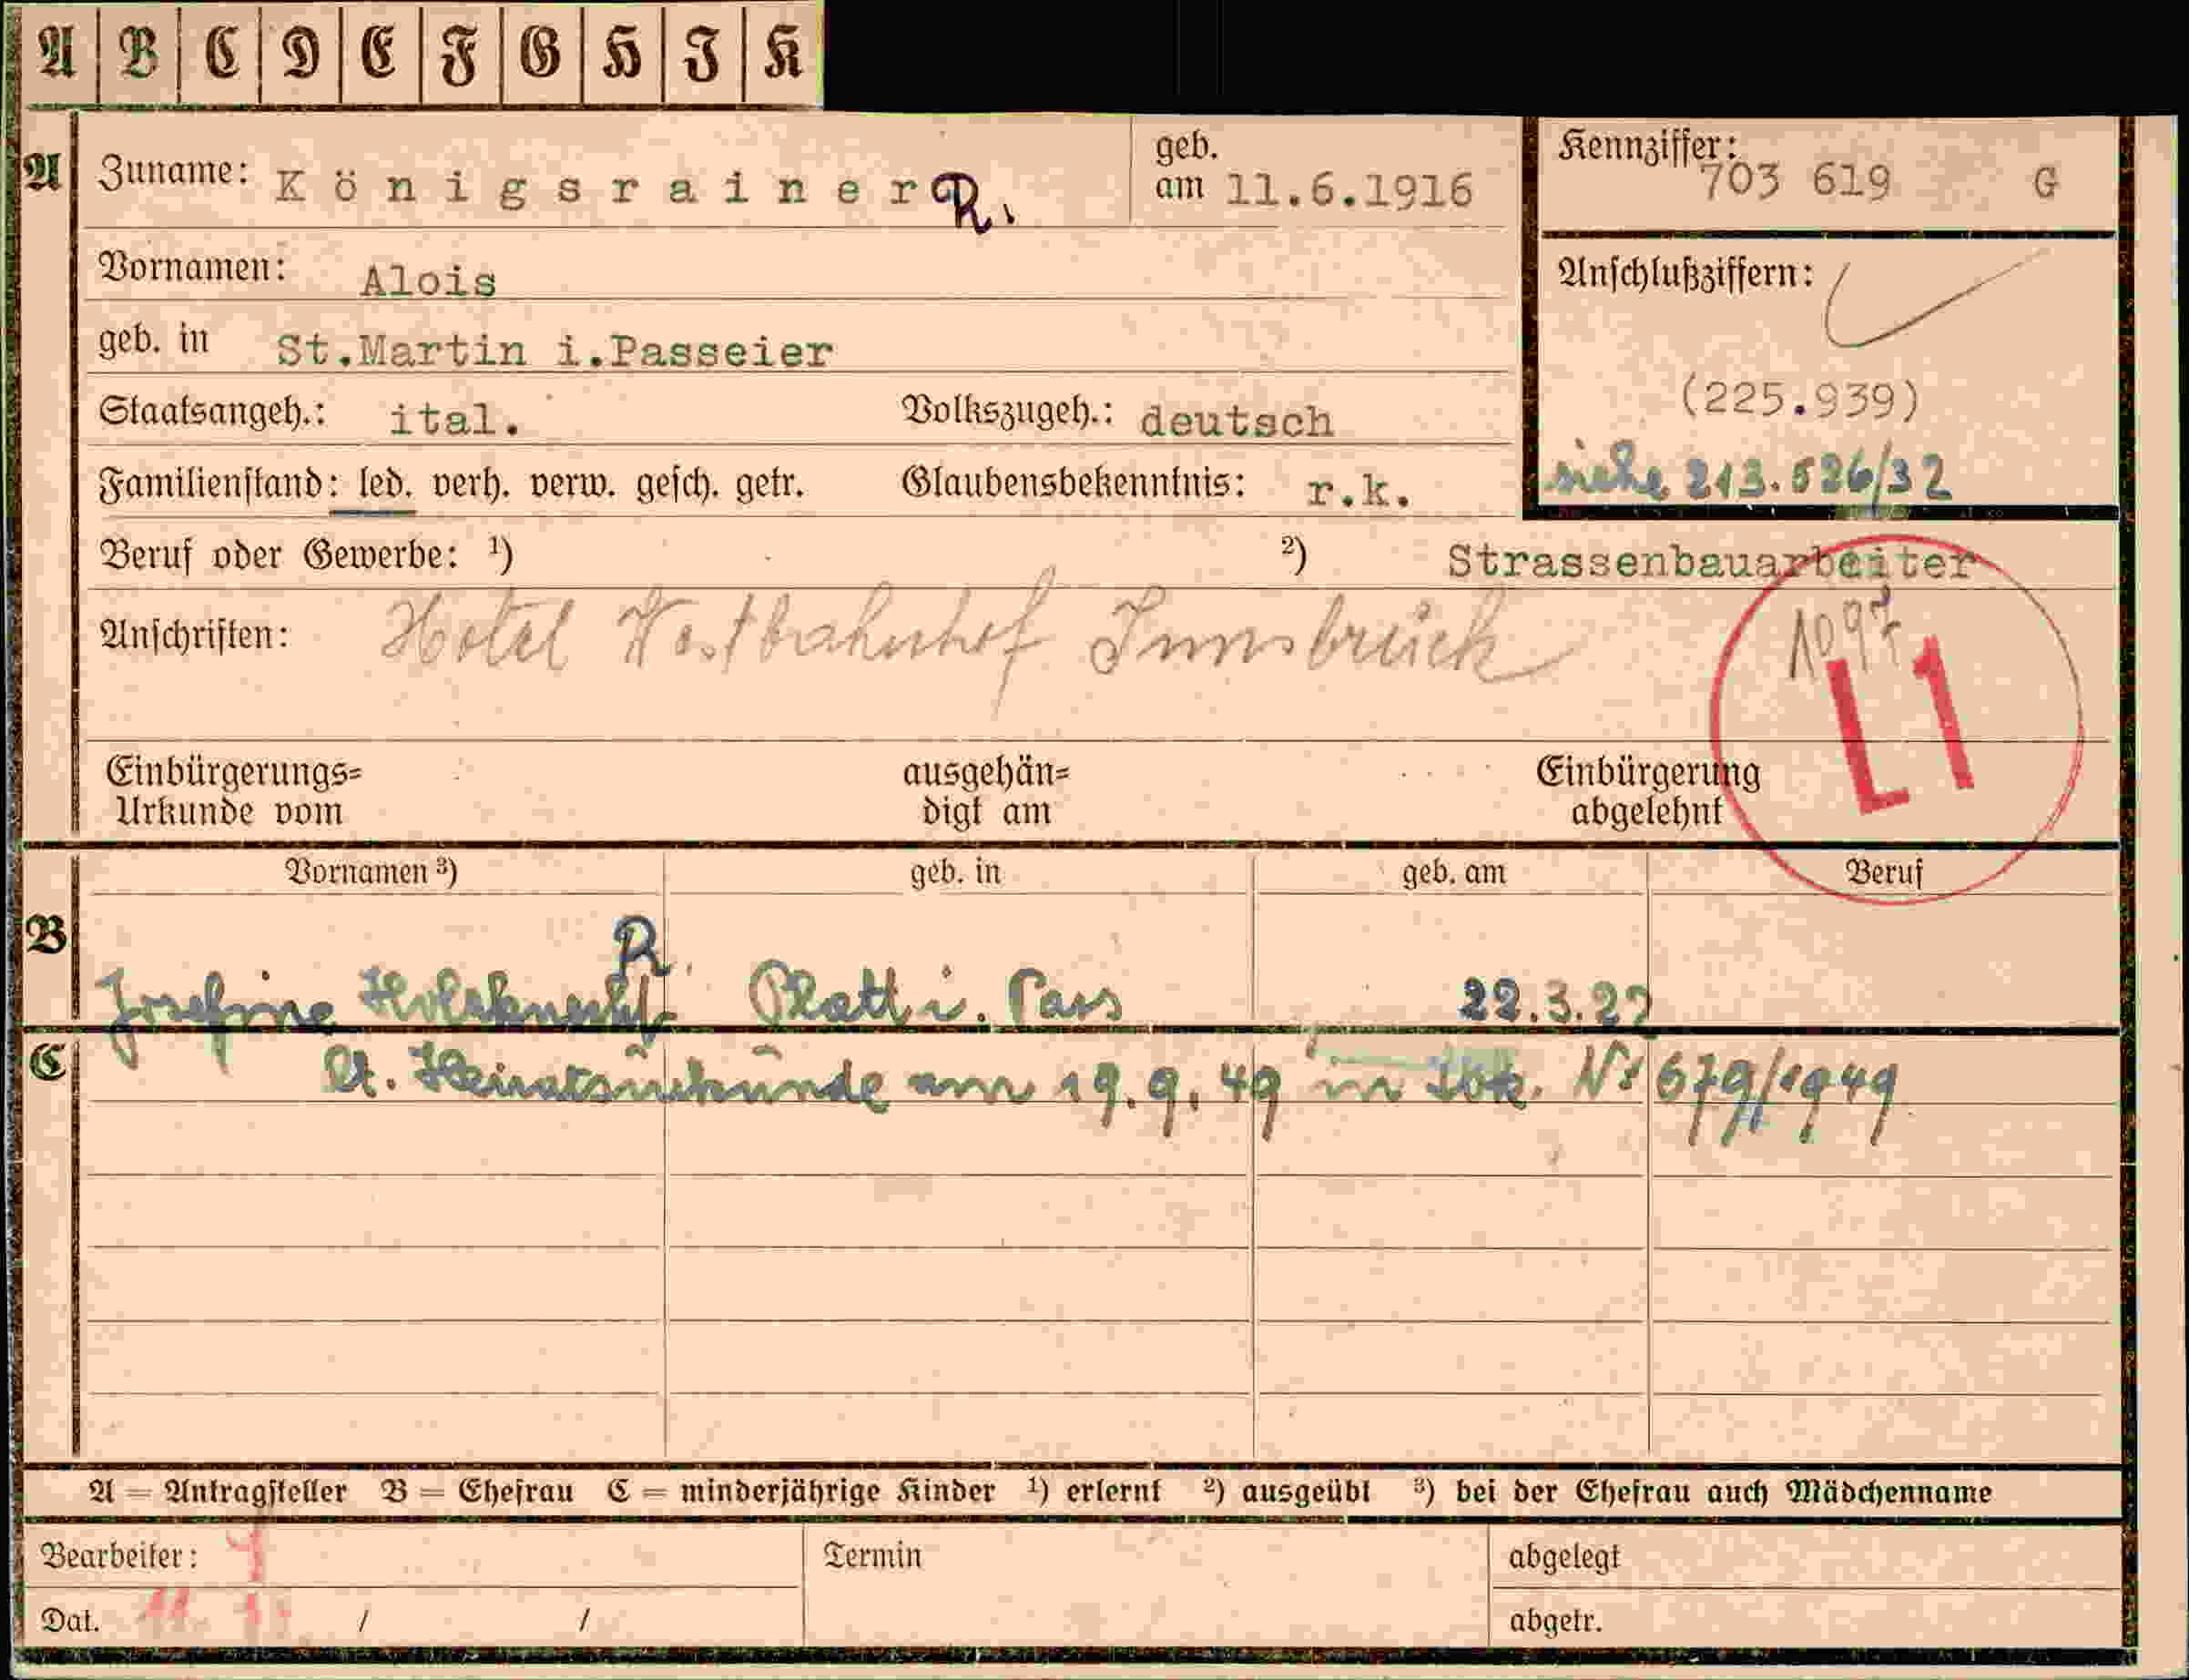 A B C D E F G H I K
A Zuname: Königsrainer R. geb. am 11.6.1916
Kennziffer: 703 619 G
Vornamen: Alois
Anschlußziffern:
geb. in St.Martin i.Passeier
(225.939)
Staatsangeh.: ital. Volkszugeh.: deutsch
Familienstand: led. verh. verw. gesch. getr. Glaubensbekenntnis: r.k.
siehe 213.526/32
Beruf oder Gewerbe: ¹) ²) Strassenbauarbeiter
Anschriften: Hotel Westbahnhof Innsbruck
L1
Einbürgerungs=
Urkunde vom
ausgehän=
digt am
Einbürgerung
abgelehnt
Vornamen ³) geb. in geb. am Beruf
B
R.
Josefine Holzknecht Platt i. Pass 22.3.22
C Lt. Heiratsurkunde am 19.9.49 in Nr 679/1949
A = Antragsteller B = Ehefrau C = minderjährige Kinder ¹) erlernt ²) ausgeübt ³) bei der Ehefrau auch Mädchenname
Bearbeiter: Termin abgelegt
Dat. / / abgetr.